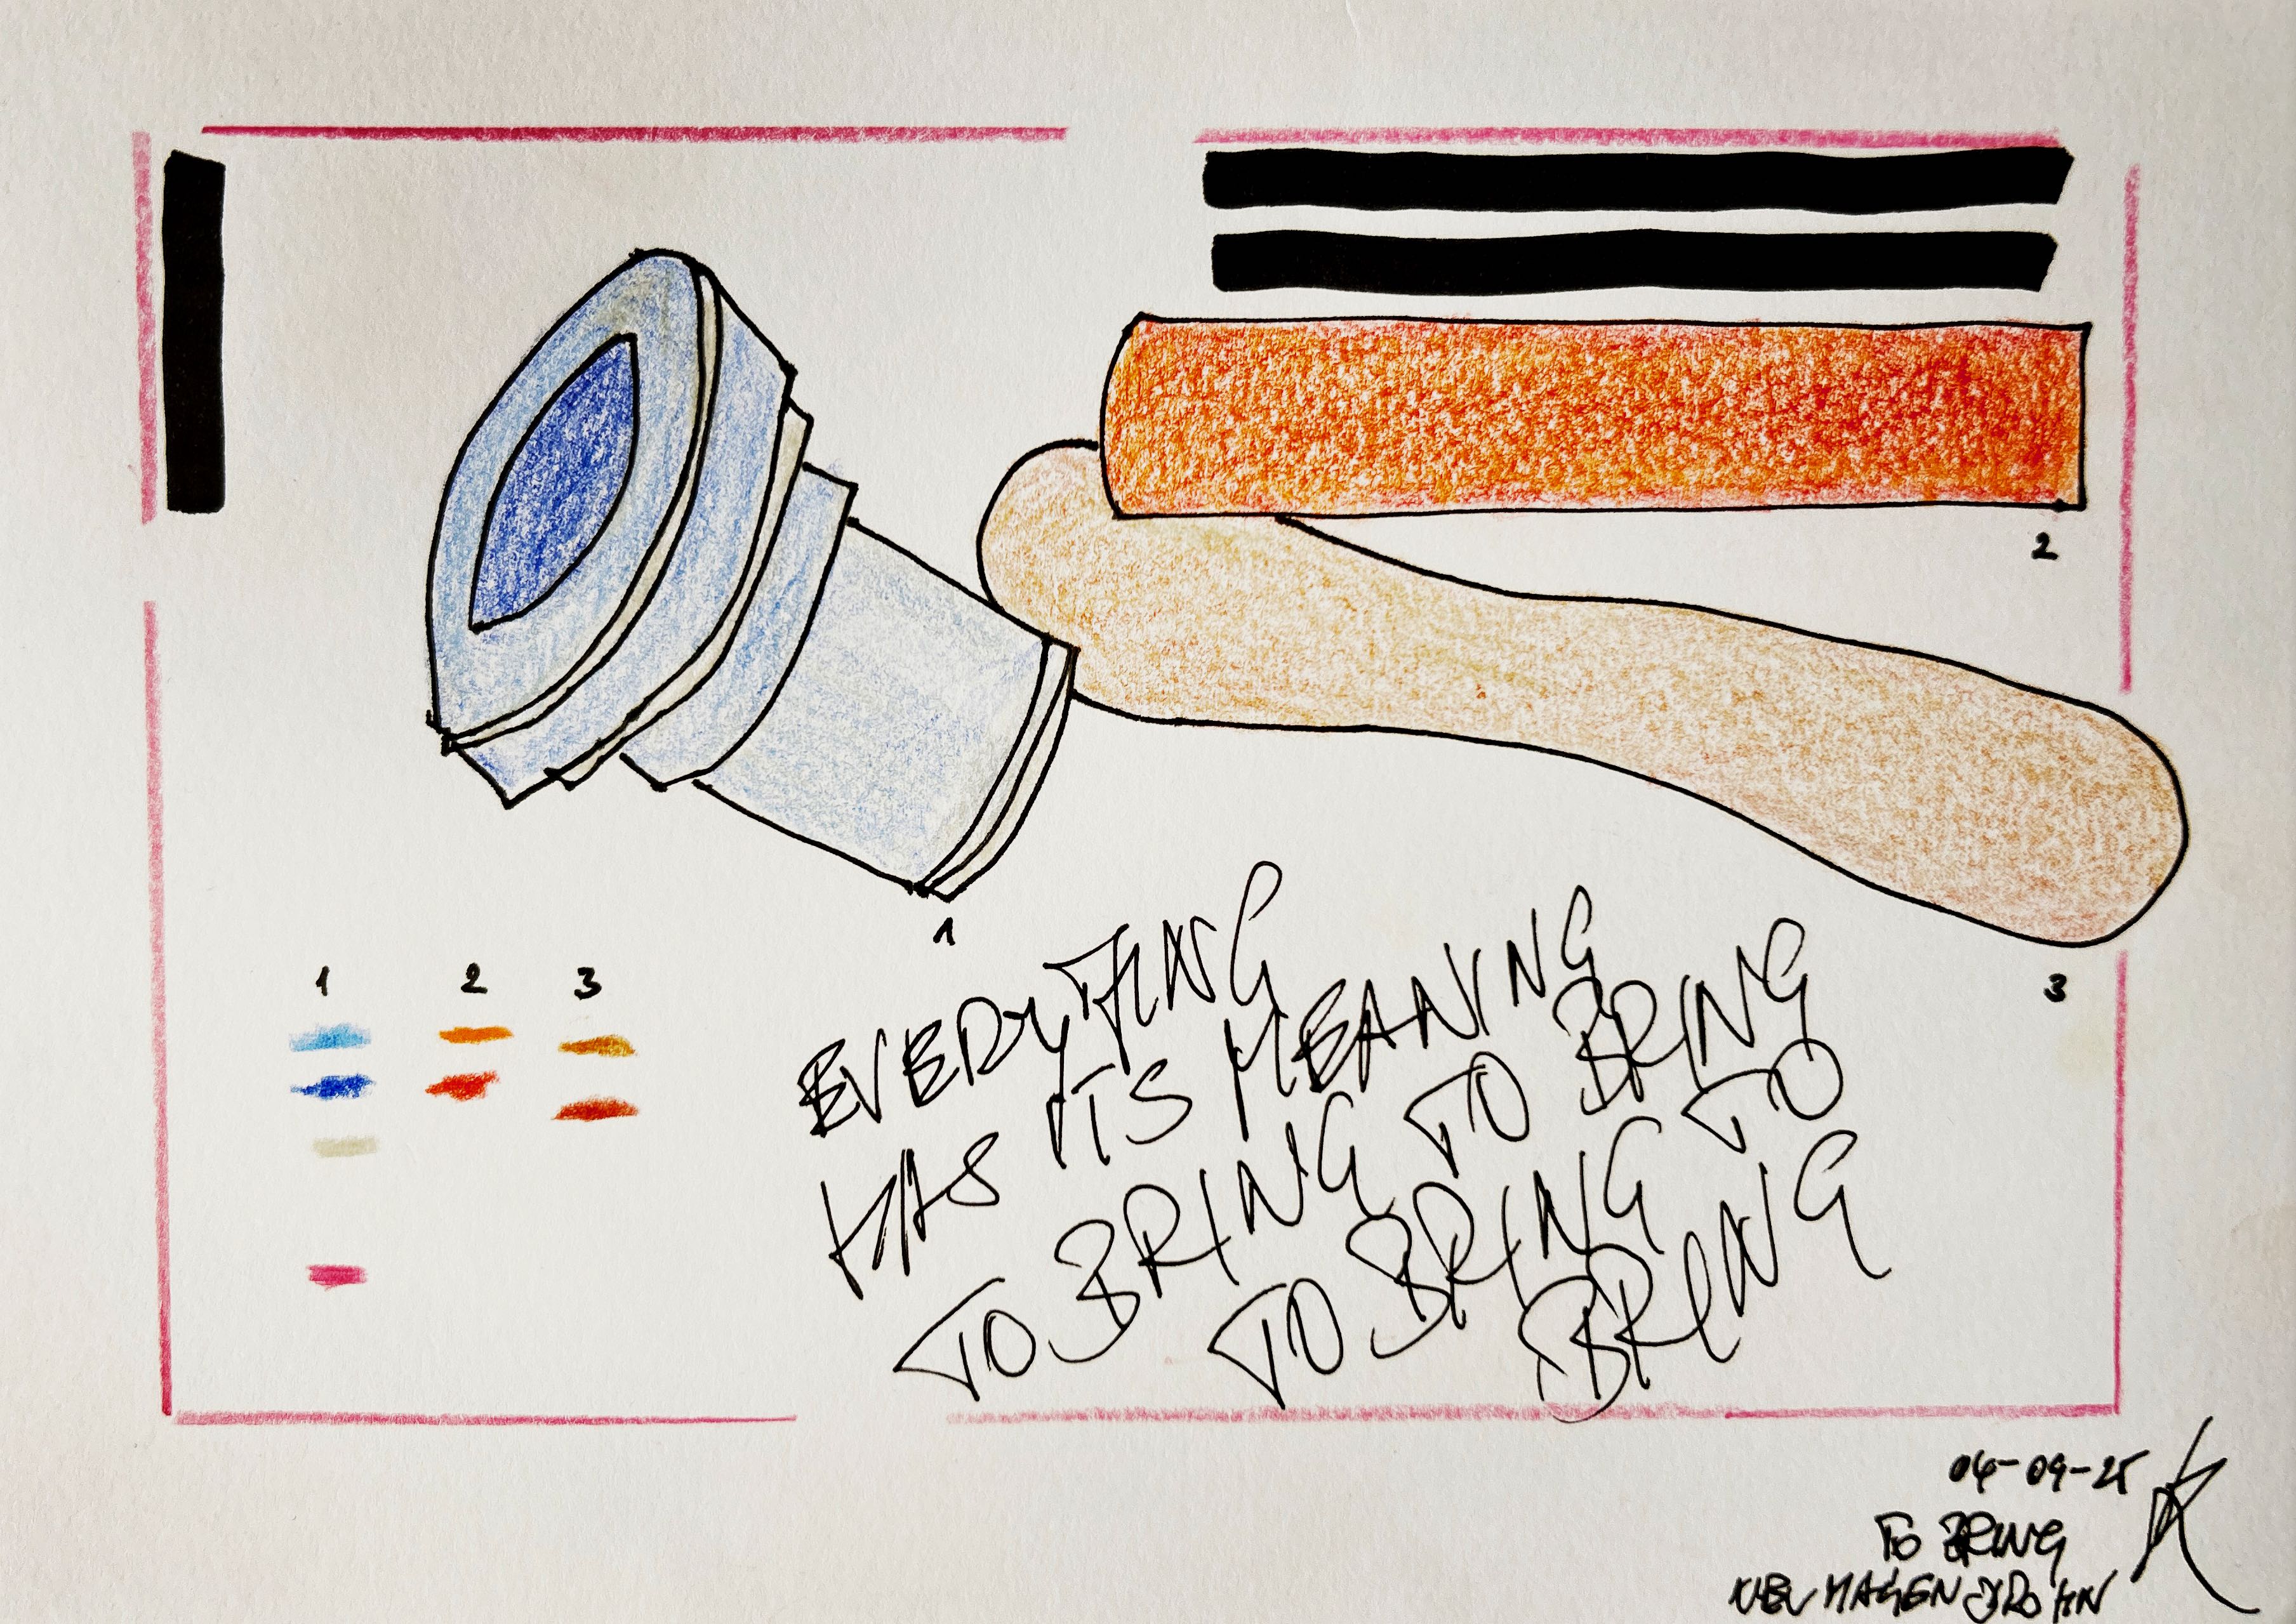 2
1
3
1 2 3
EVERYTHING
HAS ITS MEANING
TO BRING TO BRING
TO BRING TO
BRING
04-09-25
TO BRING